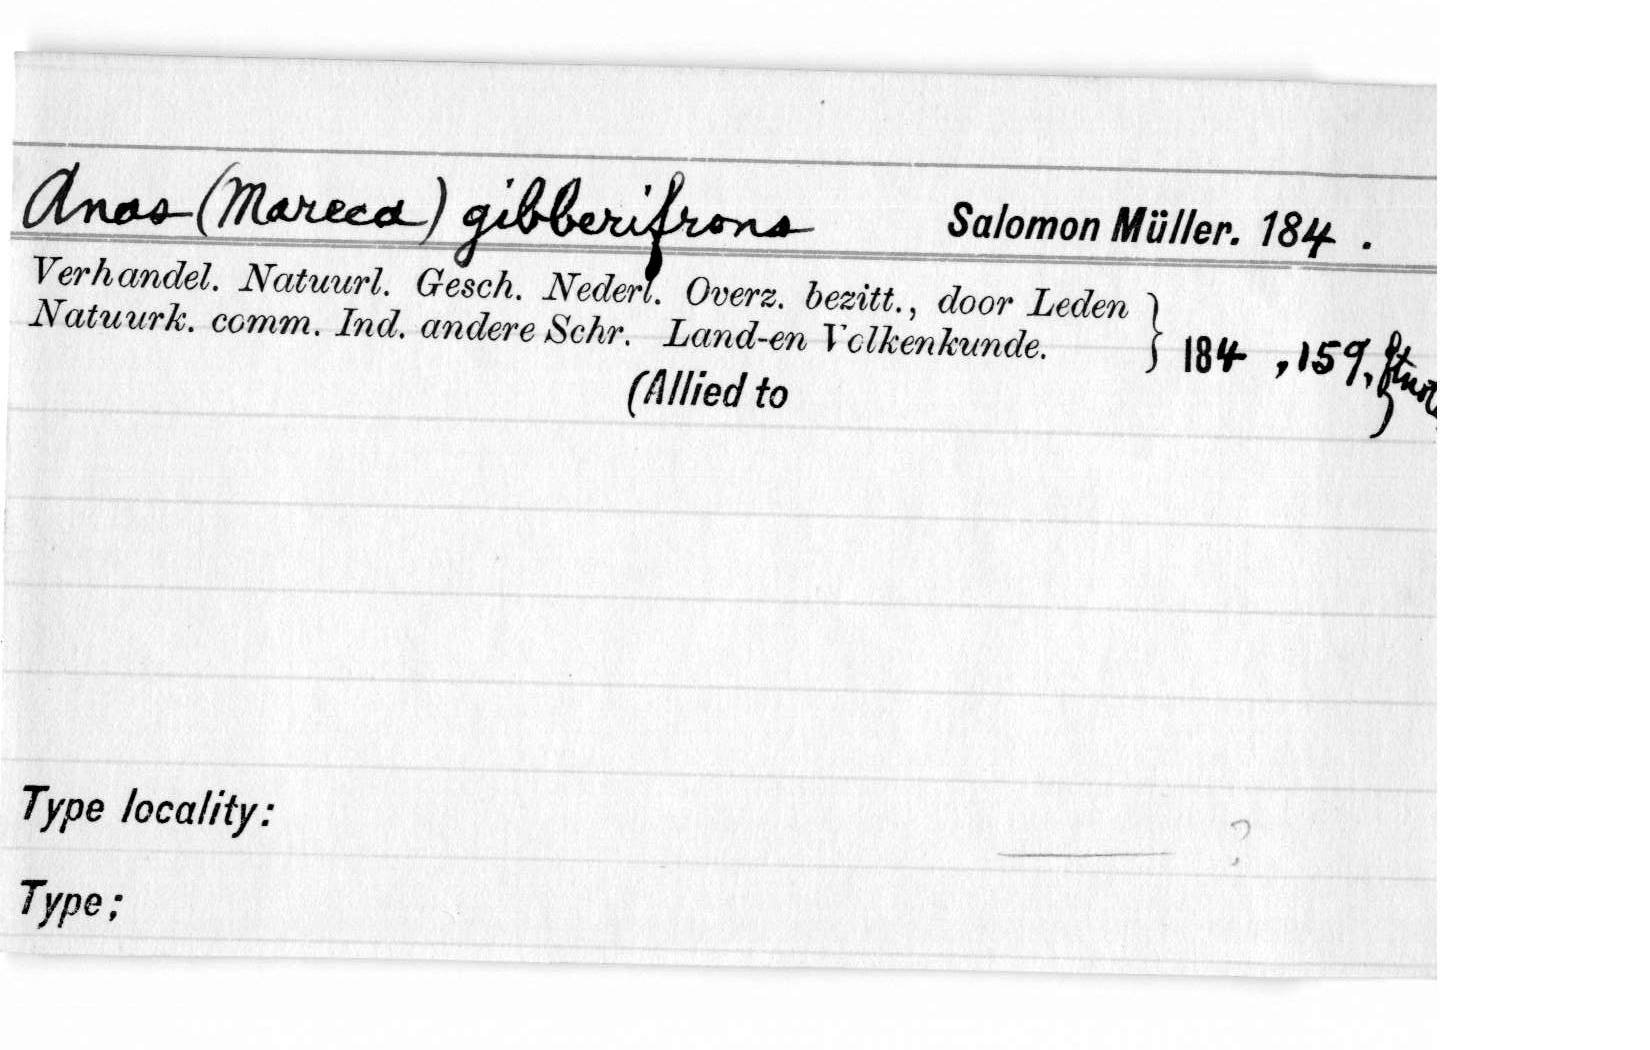 Anas (Mareca) gibberifrons Salomon Müller. 184 .
Verhandel. Natuurl. Gesch. Nederl. Overz. bezitt., door Leden
Natuurk. comm. Ind. andere Schr. Land-en Volkenkunde. } 184 , 159, ftnot
(Allied to )
Type locality: ?
Type;